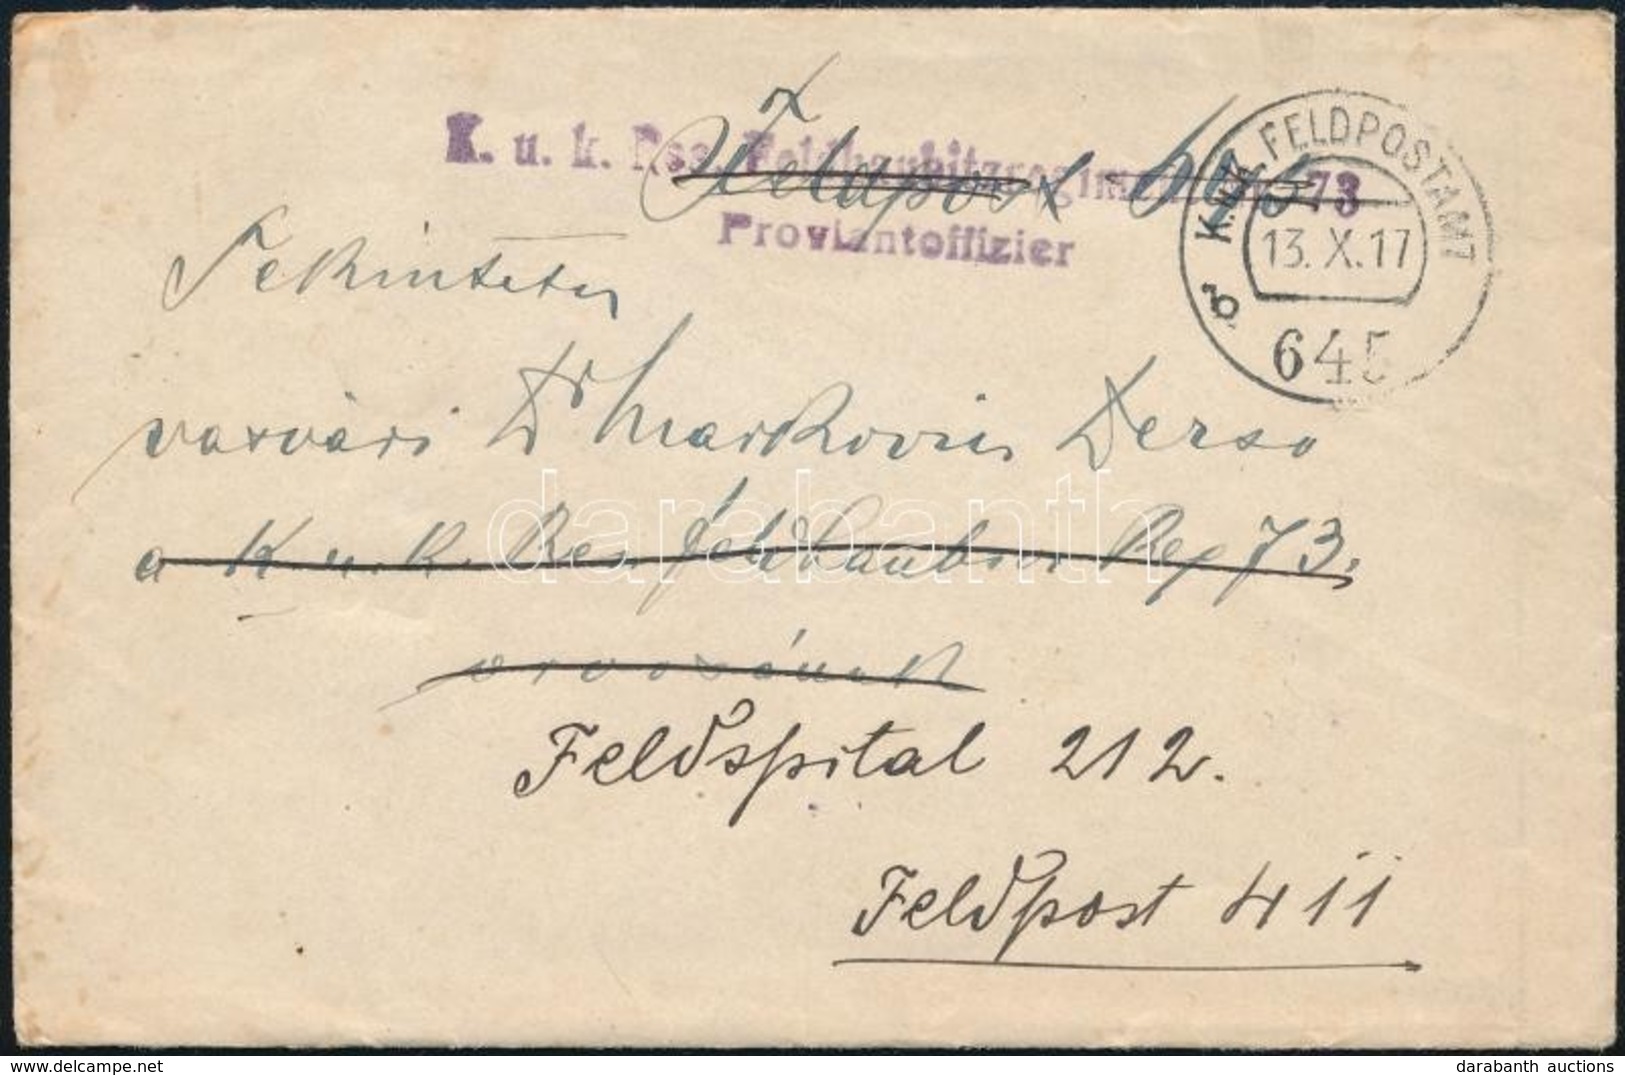 K. u. k. Res. Feldhaubitzregiment Nr. 73
Proviantoffizier
Feldpost
K.u.K. FELDPOSTAMT
13. X. 17
b
645
Tekintetes
vasvári Dr Markovics Dezső
a K. u. K. Res. feldhaubitz Reg 73.
orvosának
Feldspital 212.
Feldpost 411
darabanth
darabanth auctions